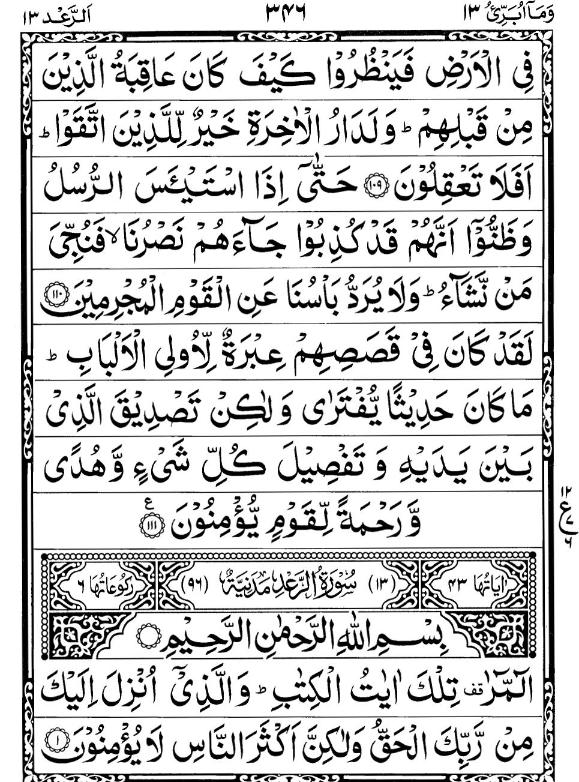 وَمَآ اُبَرِّئُ ١٣ ٣٤٦ اَلرَّعْد ١٣
فِى الْاَرْضِ فَيَنْظُرُوْا كَيْفَ كَانَ عَاقِبَةُ الَّذِيْنَ
مِنْ قَبْلِهِمْ ؕ وَلَدَارُ الْاٰخِرَةِ خَيْرٌ لِّلَّذِيْنَ اتَّقَوْا ؕ
اَفَلَا تَعْقِلُوْنَ ١٠٩ حَتّٰٓى اِذَا اسْتَيْـَٔسَ الرُّسُلُ
وَظَنُّوْۤا اَنَّهُمْ قَدْ كُذِبُوْا جَآءَهُمْ نَصْرُنَا ۙ فَنُجِّىَ
مَنْ نَّشَآءُ ؕ وَلَا يُرَدُّ بَاْسُنَا عَنِ الْقَوْمِ الْمُجْرِمِيْنَ ١١٠
لَقَدْ كَانَ فِىْ قَصَصِهِمْ عِبْرَةٌ لِّاُولِى الْاَلْبَابِ ؕ
مَا كَانَ حَدِيْثًا يُّفْتَرٰى وَلٰكِنْ تَصْدِيْقَ الَّذِىْ
بَيْنَ يَدَيْهِ وَتَفْصِيْلَ كُلِّ شَىْءٍ وَّهُدًى
وَّرَحْمَةً لِّقَوْمٍ يُّؤْمِنُوْنَ ١١١ ع
١٢
ع ٧
٦
اٰيَاتُهَا ٤٣ (١٣) سُوْرَةُ الرَّعْدِ مَدَنِيَّةٌ (٩٦) رُكُوْعَاتُهَا ٦
بِسْمِ اللّٰهِ الرَّحْمٰنِ الرَّحِيْمِ
الٓمّٓرٰ ۟قف تِلْكَ اٰيٰتُ الْكِتٰبِ ؕ وَالَّذِىْۤ اُنْزِلَ اِلَيْكَ
مِنْ رَّبِّكَ الْحَقُّ وَلٰكِنَّ اَكْثَرَ النَّاسِ لَا يُؤْمِنُوْنَ ١